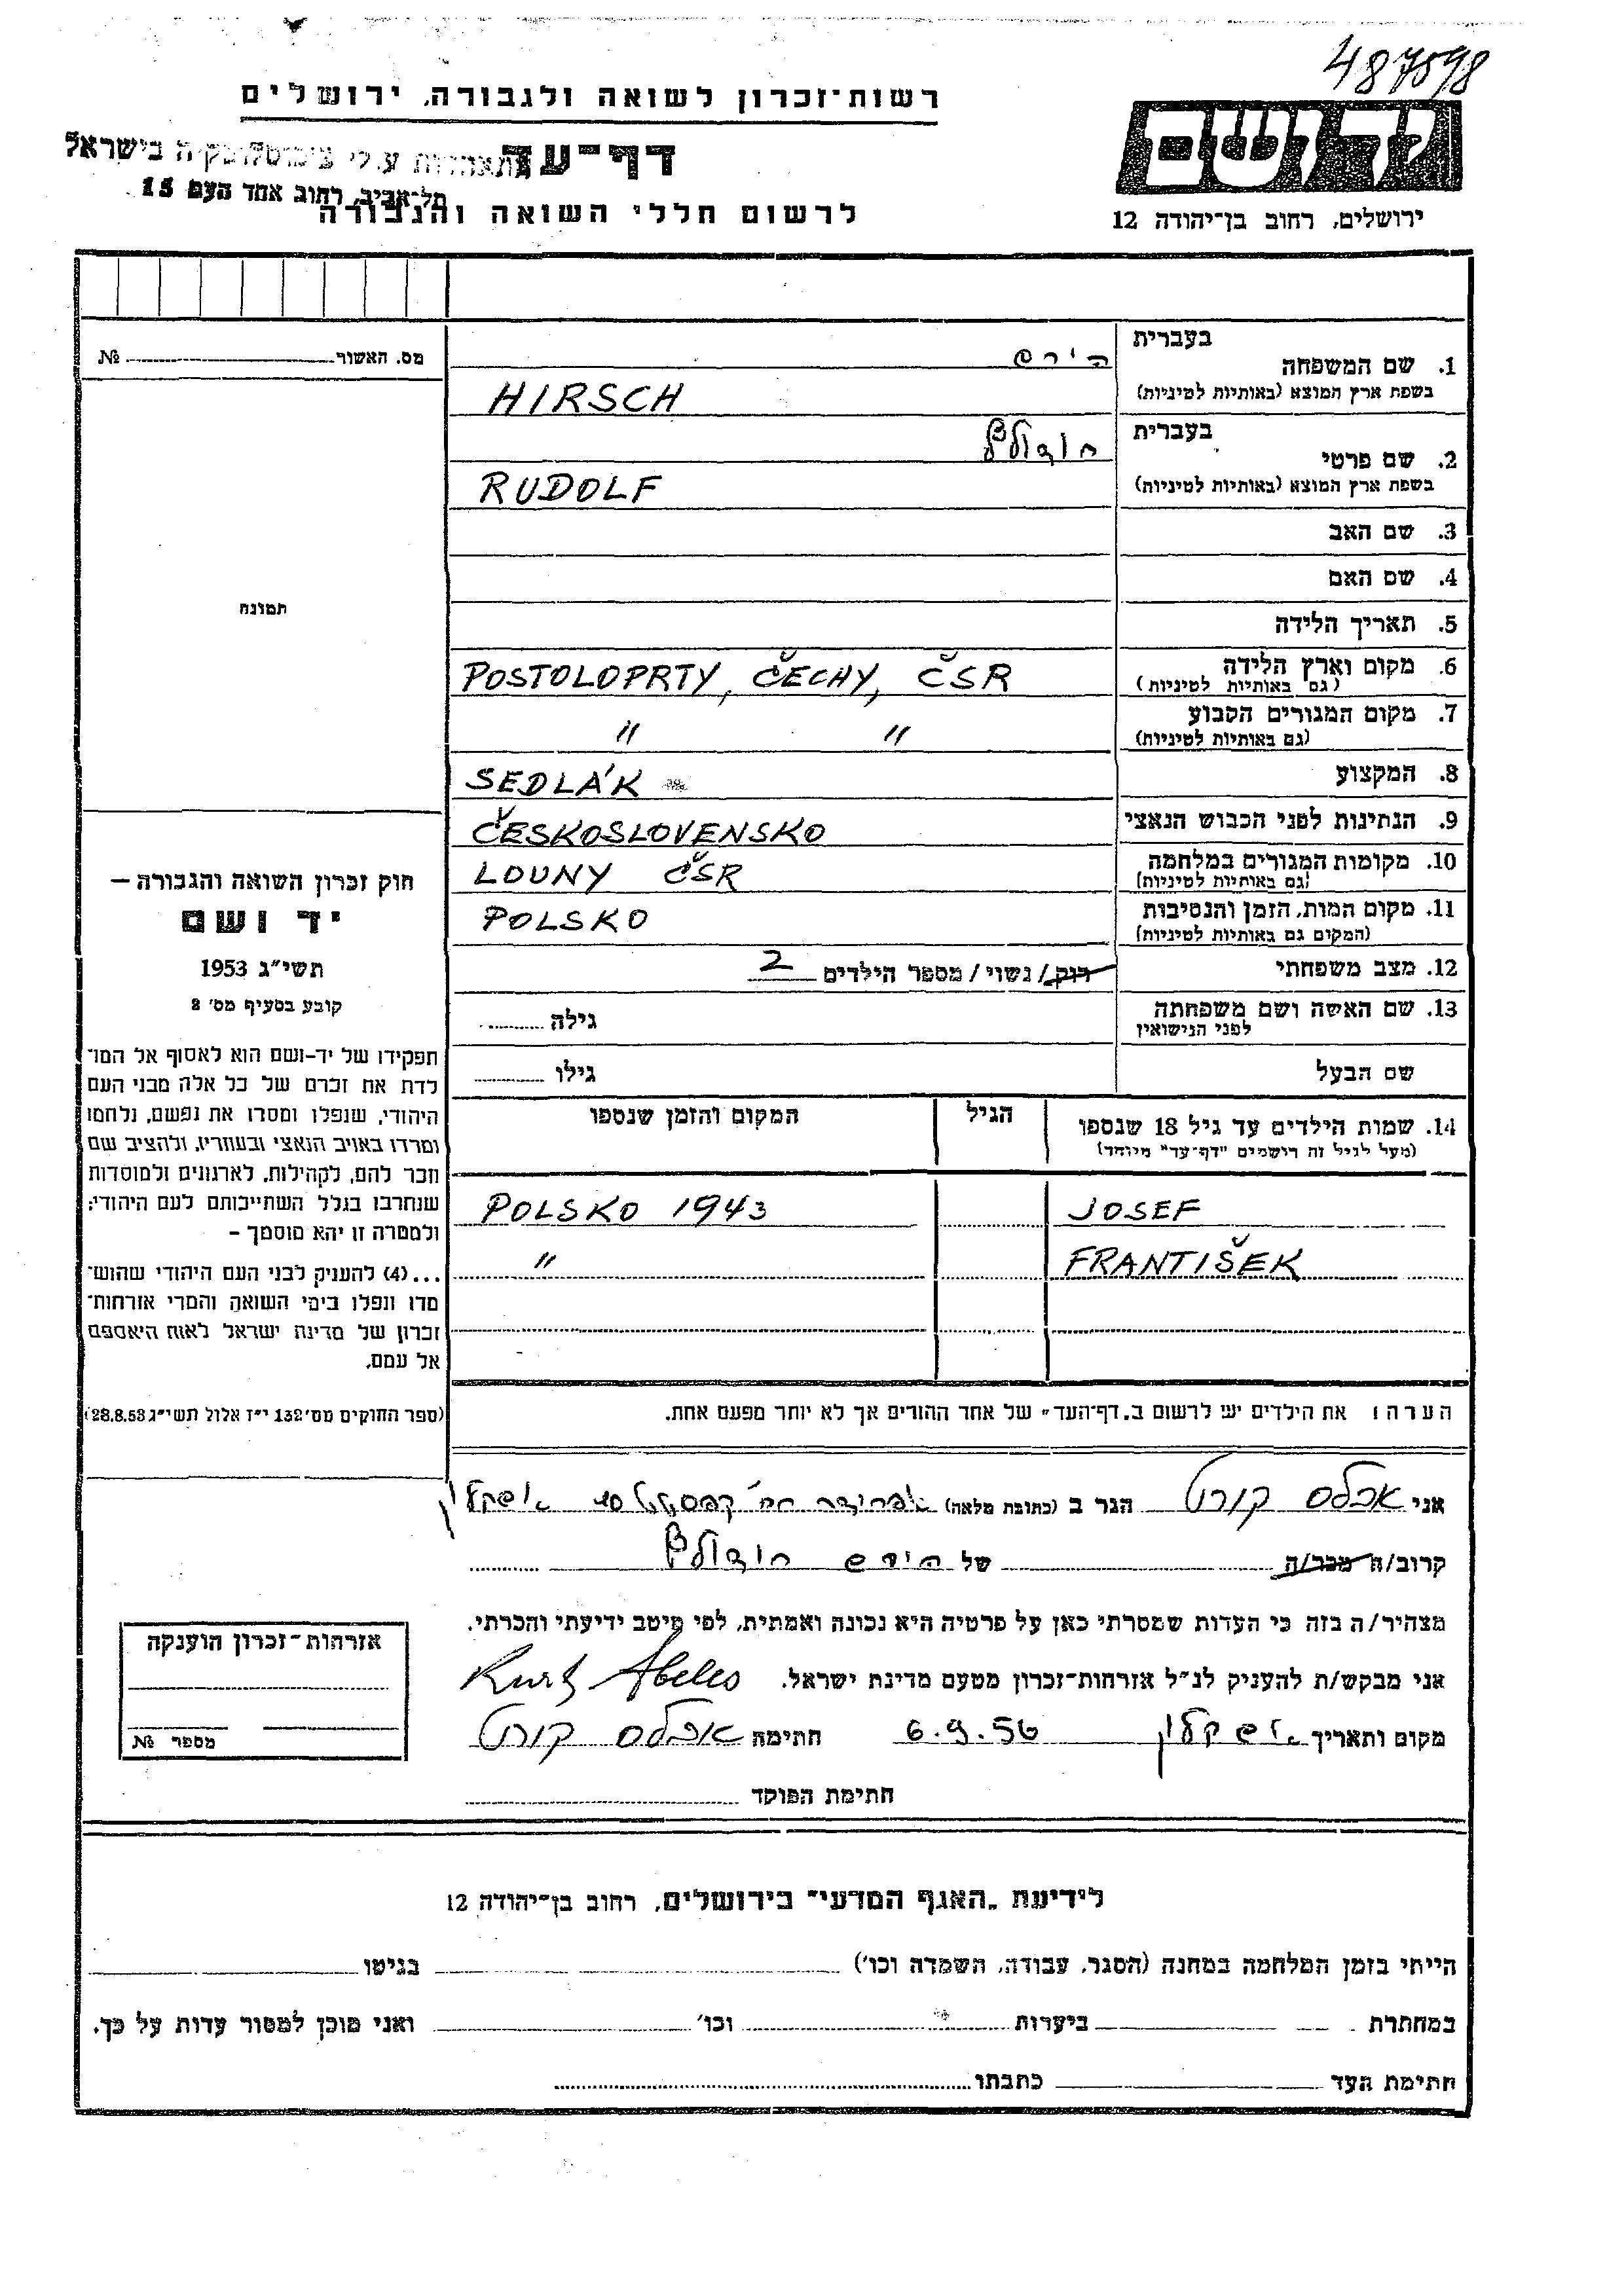 487598
רשות-זכרון לשואה ולגבורה, ירושלים
יד ושם
דף-עד
התאחדות עולי צ'כוסלובקיה בישראל
תל-אביב, רחוב אחד העם 15
לרשום חללי השואה והגבורה
ירושלים, רחוב בן-יהודה 12
מס. האשור №
1. שם המשפחה
בעברית
הירש
בשפת ארץ המוצא (באותיות לטיניות)
HIRSCH
2. שם פרטי
בעברית
רודולף
בשפת ארץ המוצא (באותיות לטיניות)
RUDOLF
3. שם האב
4. שם האם
תמונה
5. תאריך הלידה
6. מקום וארץ הלידה
(גם באותיות לטיניות)
POSTOLOPRTY, ČECHY, ČSR
7. מקום המגורים הקבוע
(גם באותיות לטיניות)
" "
8. המקצוע
SEDLÁK
9. הנתינות לפני הכבוש הנאצי
ČESKOSLOVENSKO
10. מקומות המגורים במלחמה
(גם באותיות לטיניות)
LOUNY ČSR
11. מקום המות, הזמן והנסיבות
(המקום גם באותיות לטיניות)
POLSKO
12. מצב משפחתי
רוק/נשוי/מספר הילדים 2
13. שם האשה ושם משפחתה
לפני הנישואין
גילה
שם הבעל
גילו
14. שמות הילדים עד גיל 18 שנספו
(מעל לגיל זה רושמים "דף-עד" מיוחד)
הגיל
המקום והזמן שנספו
JOSEF POLSKO 1943
FRANTIŠEK "
הערה: את הילדים יש לרשום ב"דף-העד" של אחד ההורים אך לא יותר מפעם אחת.
חוק זכרון השואה והגבורה —
יד ושם
תשי"ג 1953
קובע בסעיף מס' 2
תפקידו של יד-ושם הוא לאסוף אל המו־
לדת את זכרם של כל אלה מבני העם
היהודי, שנפלו ומסרו את נפשם, נלחמו
ומרדו באויב הנאצי ובעוזריו, ולהציב שם
וזכר להם, לקהילות, לארגונים ולמוסדות
שנחרבו בגלל השתייכותם לעם היהודי;
ולמטרה זו יהא מוסמך –
...(4) להעניק לבני העם היהודי שהוש־
מדו ונפלו בימי השואה והמרי אזרחות־
זכרון של מדינת ישראל לאות היאספם
אל עמם.
(ספר החוקים מס' 132 י"ז אלול תשי"ג 28.8.53)
אני אבלס קורט הגר ב (כתובת מלאה) אשקלון
קרוב/ה מכר/ה של הירש רודולף
מצהיר/ה בזה כי העדות שמסרתי כאן על פרטיה היא נכונה ואמתית, לפי מיטב ידיעתי והכרתי.
אני מבקש/ת להעניק לנ"ל אזרחות-זכרון מטעם מדינת ישראל. Kurt Abeles
מקום ותאריך אשקלון 6.9.56 חתימה אבלס קורט
חתימת הפוקד
אזרחות-זכרון הוענקה
מספר №
לידיעת "האגף המדעי" בירושלים, רחוב בן-יהודה 12
הייתי בזמן המלחמה במחנה (הסגר, עבודה, השמדה וכו') בגיטו
במחתרת ביערות וכו' ואני מוכן למסור עדות על כך.
חתימת העד כתבתו